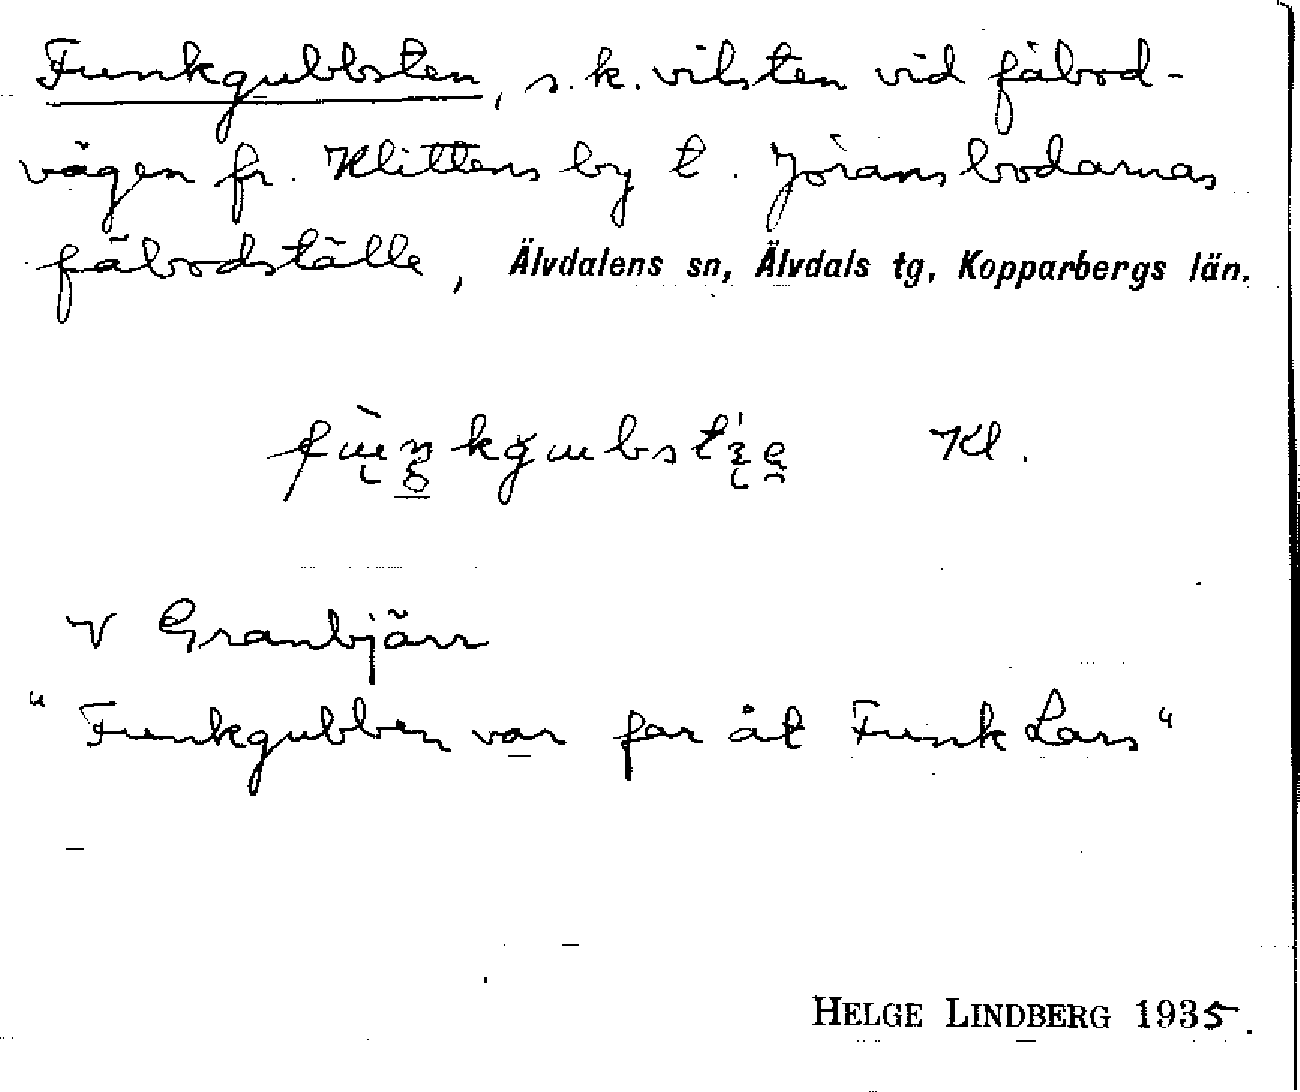 Funkgubbsten, s.k. vilsten vid fäbod-
vägen fr. Klittens by t. Jöransbodarnas
fäbodställe, Älvdalens sn, Älvdals tg, Kopparbergs län.
Kl.
V Granbjärr
"Funkgubben var far åt Funk Lars"
HELGE LINDBERG 1935.